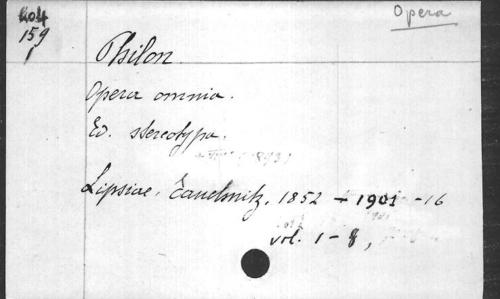 Opera
Kol4
159
1
Philon.
Opera omnia.
Ed. stereotypa.
Lipsiae, Tauchnitz, 1852 - 1901 -16
vol. 1-8,